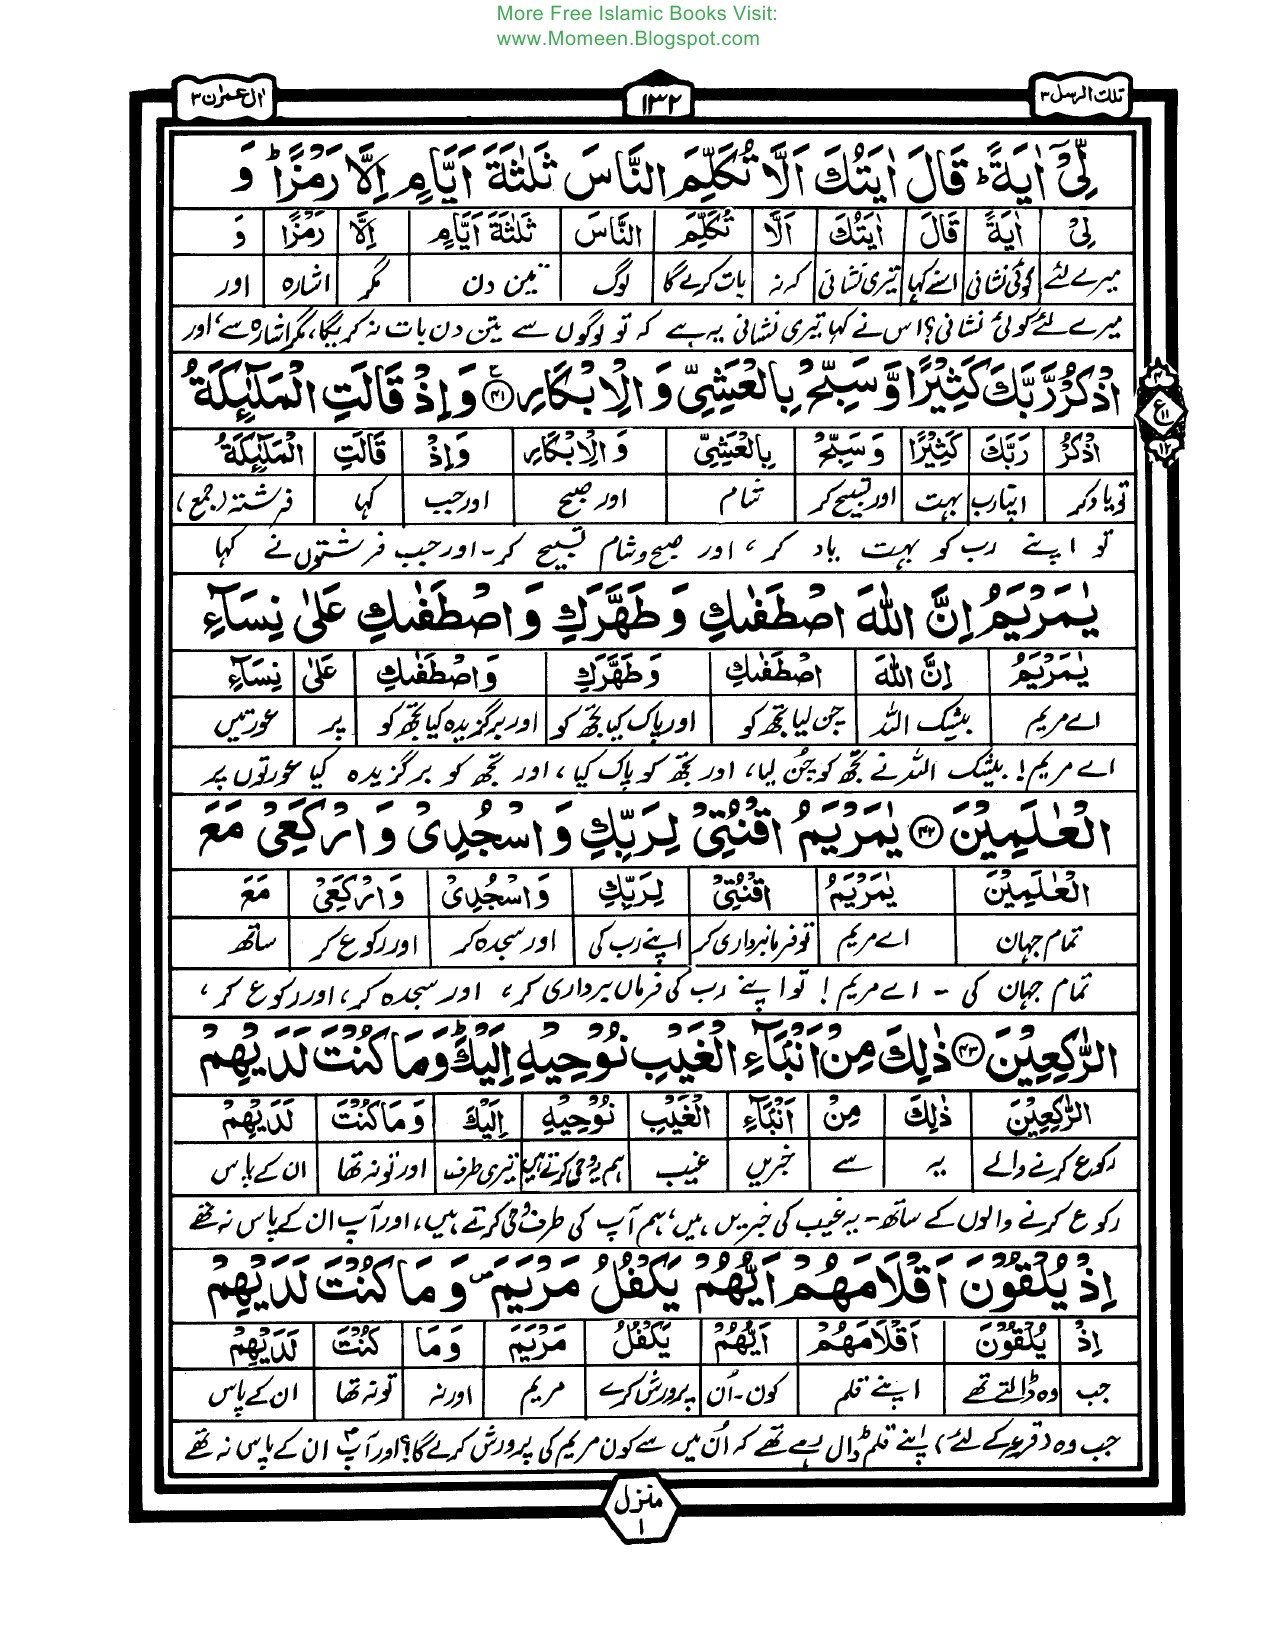 More Free Islamic Books Visit:
www.Momeen.Blogspot.com
تلك الرسل ۳
۱۳۲
اٰل عمرٰن ۳
لِّیْۤ اٰیَةً ؕ قَالَ اٰیَتُكَ اَلَّا تُكَلِّمَ النَّاسَ ثَلٰثَةَ اَیَّامٍ اِلَّا رَمْزًا ؕ وَ
لِیْ اٰیَةً قَالَ اٰیَتُكَ اَلَّا تُكَلِّمَ النَّاسَ ثَلٰثَةَ اَیَّامٍ اِلَّا رَمْزًا وَ
میرے لئے کوئی نشانی اسنے کہا تیری نشانی کہ نہ بات کرے گا لوگ تین دن مگر اشارہ اور
میرے لئے کوئی نشانی؟ اس نے کہا تیری نشانی یہ ہے کہ تو لوگوں سے تین دن بات نہ کریگا، مگر اشارہ سے، اور
اذْكُرْ رَّبَّكَ كَثِیْرًا وَّ سَبِّحْ بِالْعَشِیِّ وَ الْاِبْكَارِ ﴿۴۱﴾ ع وَ اِذْ قَالَتِ الْمَلٰٓىِٕكَةُ
۴
ع ۱۱
۱۲
اذْكُرْ رَبَّكَ كَثِیْرًا وَ سَبِّحْ بِالْعَشِیِّ وَ الْاِبْكَارِ وَ اِذْ قَالَتِ الْمَلٰٓىِٕكَةُ
تو یاد کر اپنا رب بہت اور تسبیح کر شام اور صبح اور جب کہا فرشتہ (جمع)
تو اپنے رب کو بہت یاد کر، اور صبح و شام تسبیح کر۔ اور جب فرشتوں نے کہا
یٰمَرْیَمُ اِنَّ اللّٰهَ اصْطَفٰىكِ وَ طَهَّرَكِ وَ اصْطَفٰىكِ عَلٰى نِسَآءِ
یٰمَرْیَمُ اِنَّ اللّٰهَ اصْطَفٰىكِ وَ طَهَّرَكِ وَ اصْطَفٰىكِ عَلٰى نِسَآءِ
اے مریم بیشک اللہ چن لیا تجھ کو اور پاک کیا تجھ کو اور برگزیدہ کیا تجھ کو پر عورتیں
اے مریم! بیشک اللہ نے تجھ کو چُن لیا، اور تجھ کو پاک کیا، اور تجھ کو برگزیدہ کیا عورتوں پر
الْعٰلَمِیْنَ ﴿۴۲﴾ یٰمَرْیَمُ اقْنُتِیْ لِرَبِّكِ وَ اسْجُدِیْ وَ ارْكَعِیْ مَعَ
الْعٰلَمِیْنَ یٰمَرْیَمُ اقْنُتِیْ لِرَبِّكِ وَ اسْجُدِیْ وَ ارْكَعِیْ مَعَ
تمام جہان اے مریم تو فرمانبرداری کر اپنے رب کی اور سجدہ کر اور رکوع کر ساتھ
تمام جہان کی ۔ اے مریم! تو اپنے رب کی فرماں برداری کر، اور سجدہ کر، اور رکوع کر،
الرّٰكِعِیْنَ ﴿۴۳﴾ ذٰلِكَ مِنْ اَنْۢبَآءِ الْغَیْبِ نُوْحِیْهِ اِلَیْكَ ؕ وَ مَا كُنْتَ لَدَیْهِمْ
الرّٰكِعِیْنَ ذٰلِكَ مِنْ اَنْۢبَآءِ الْغَیْبِ نُوْحِیْهِ اِلَیْكَ وَ مَا كُنْتَ لَدَیْهِمْ
رکوع کرنے والے یہ سے خبریں غیب ہم یہ وحی کرتے ہیں تیری طرف اور تو نہ تھا ان کے پاس
رکوع کرنے والوں کے ساتھ۔ یہ غیب کی خبریں ہیں، ہم آپ کی طرف وحی کرتے ہیں، اور آپ ان کے پاس نہ تھے
اِذْ یُلْقُوْنَ اَقْلَامَهُمْ اَیُّهُمْ یَكْفُلُ مَرْیَمَ ۪ وَ مَا كُنْتَ لَدَیْهِمْ
اِذْ یُلْقُوْنَ اَقْلَامَهُمْ اَیُّهُمْ یَكْفُلُ مَرْیَمَ وَ مَا كُنْتَ لَدَیْهِمْ
جب وہ ڈالتے تھے اپنے قلم کون۔ اُن پرورش کرے مریم اور نہ تو نہ تھا ان کے پاس
جب وہ (قرعہ کے لئے) اپنے قلم ڈال رہے تھے کہ اُن میں سے کون مریم کی پرورش کرے گا؟ اور آپؐ ان کے پاس نہ تھے
منزل
۱